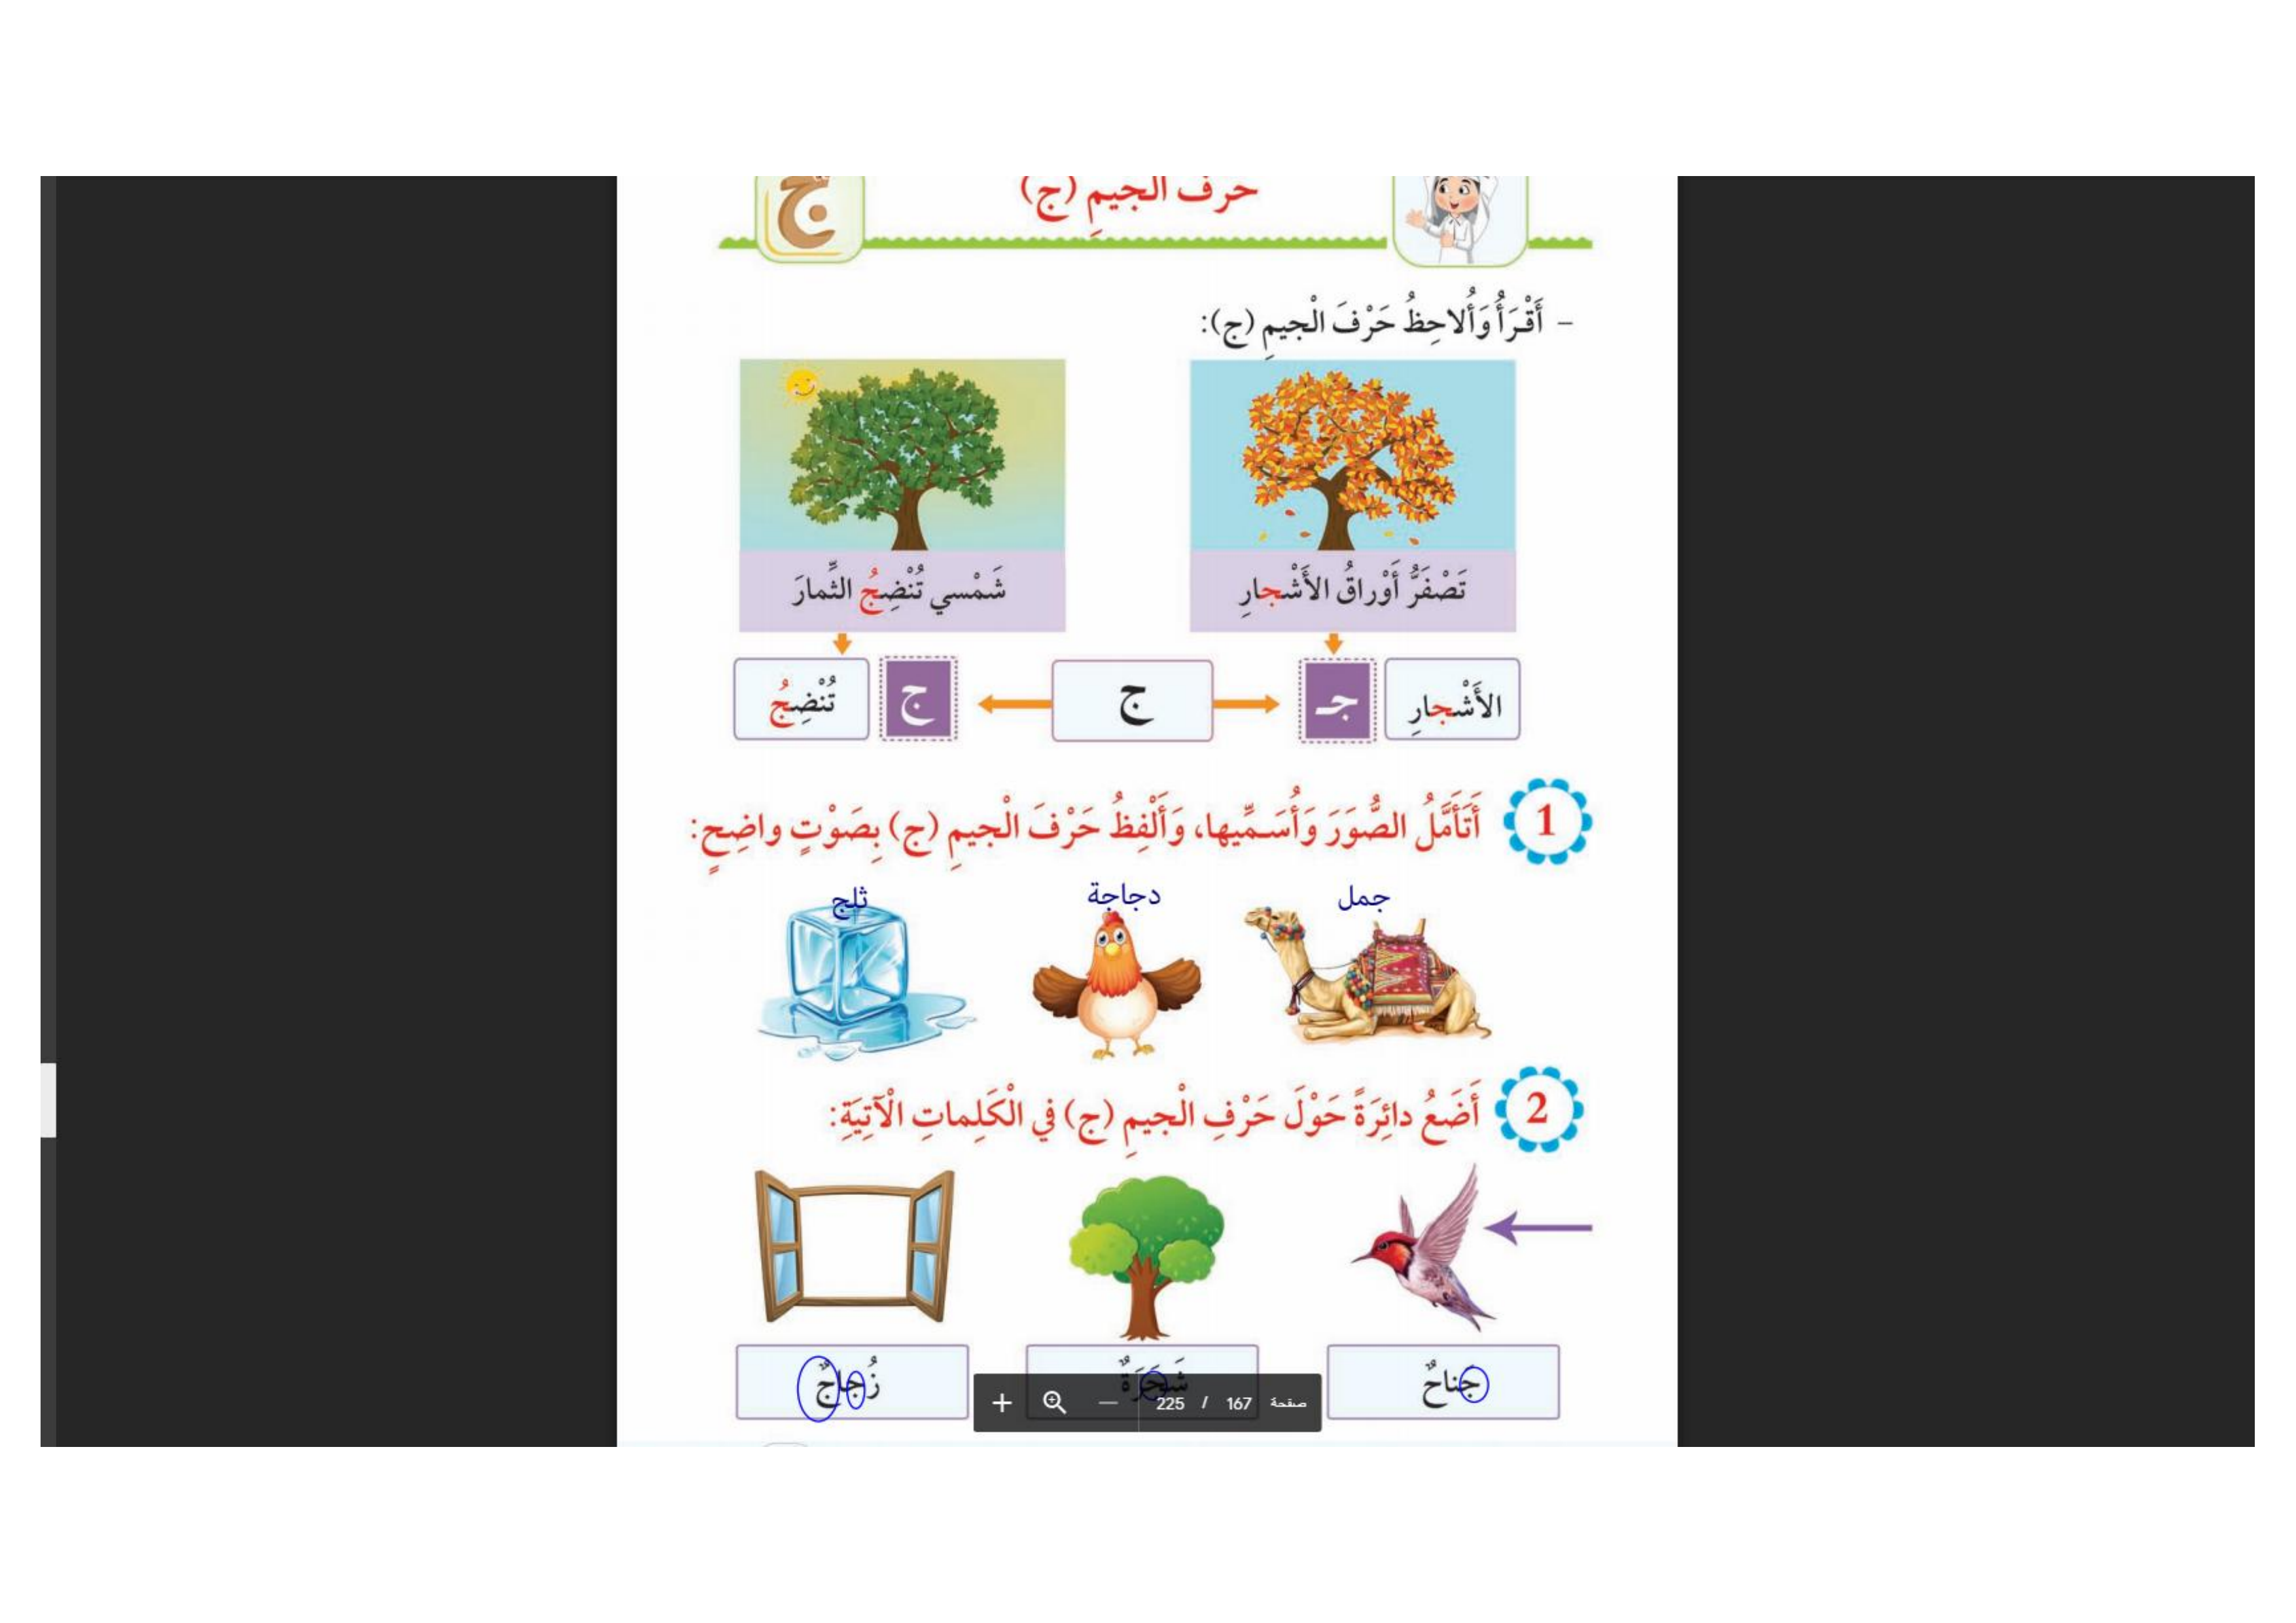 حرف الجيمِ (ج)
ج
– أَقْرَأُ وَأُلاحِظُ حَرْفَ الْجيمِ (ج):
تَصْفَرُّ أَوْراقُ الأَشْجارِ
شَمْسي تُنْضِجُ الثِّمارَ
الأَشْجارِ جـ ج ج تُنْضِجُ
1 أَتَأَمَّلُ الصُّوَرَ وَأُسَمِّيها، وَأَلْفِظُ حَرْفَ الْجيمِ (ج) بِصَوْتٍ واضِحٍ:
جمل دجاجة ثلج
2 أَضَعُ دائِرَةً حَوْلَ حَرْفِ الْجيمِ (ج) في الْكَلِماتِ الْآتِيَةِ:
جَناحٌ شَجَرَةٌ زُجاجٌ
صفحة 167 / 225